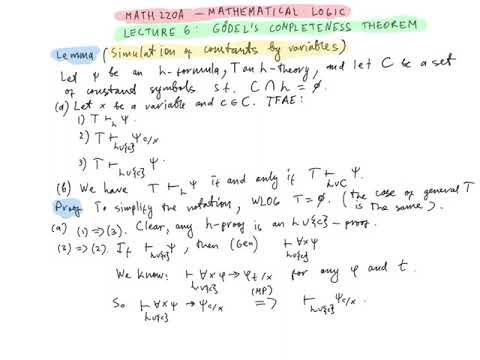 MATH 220A – MATHEMATICAL LOGIC
LECTURE 6: GÖDEL'S COMPLETENESS THEOREM
Lemma (Simulation of constants by variables)
Let φ be an L-formula, T an L-theory, and let C be a set
of constant symbols s.t. C ∩ L = ∅.
(a) Let x be a variable and c ∈ C. TFAE:
1) T ⊢_L φ.
2) T ⊢_{L∪{c}} φ_{c/x}
3) T ⊢_{L∪{c}} φ.
(b) We have T ⊢_L φ if and only if T ⊢_{L∪C} φ.
Proof To simplify the notation, WLOG T = ∅. (the case of general T
is the same).
(a) (1) => (3). Clear, any L-proof is an L∪{c}-proof.
(3) => (2). If ⊢_{L∪{c}} φ, then (Gen) ⊢_{L∪{c}} ∀xφ
We know: ⊢_{L∪{c}} ∀xφ → φ_{t/x} for any φ and t.
So ⊢_{L∪{c}} ∀xφ → φ_{c/x} (MP) => ⊢_{L∪{c}} φ_{c/x}.